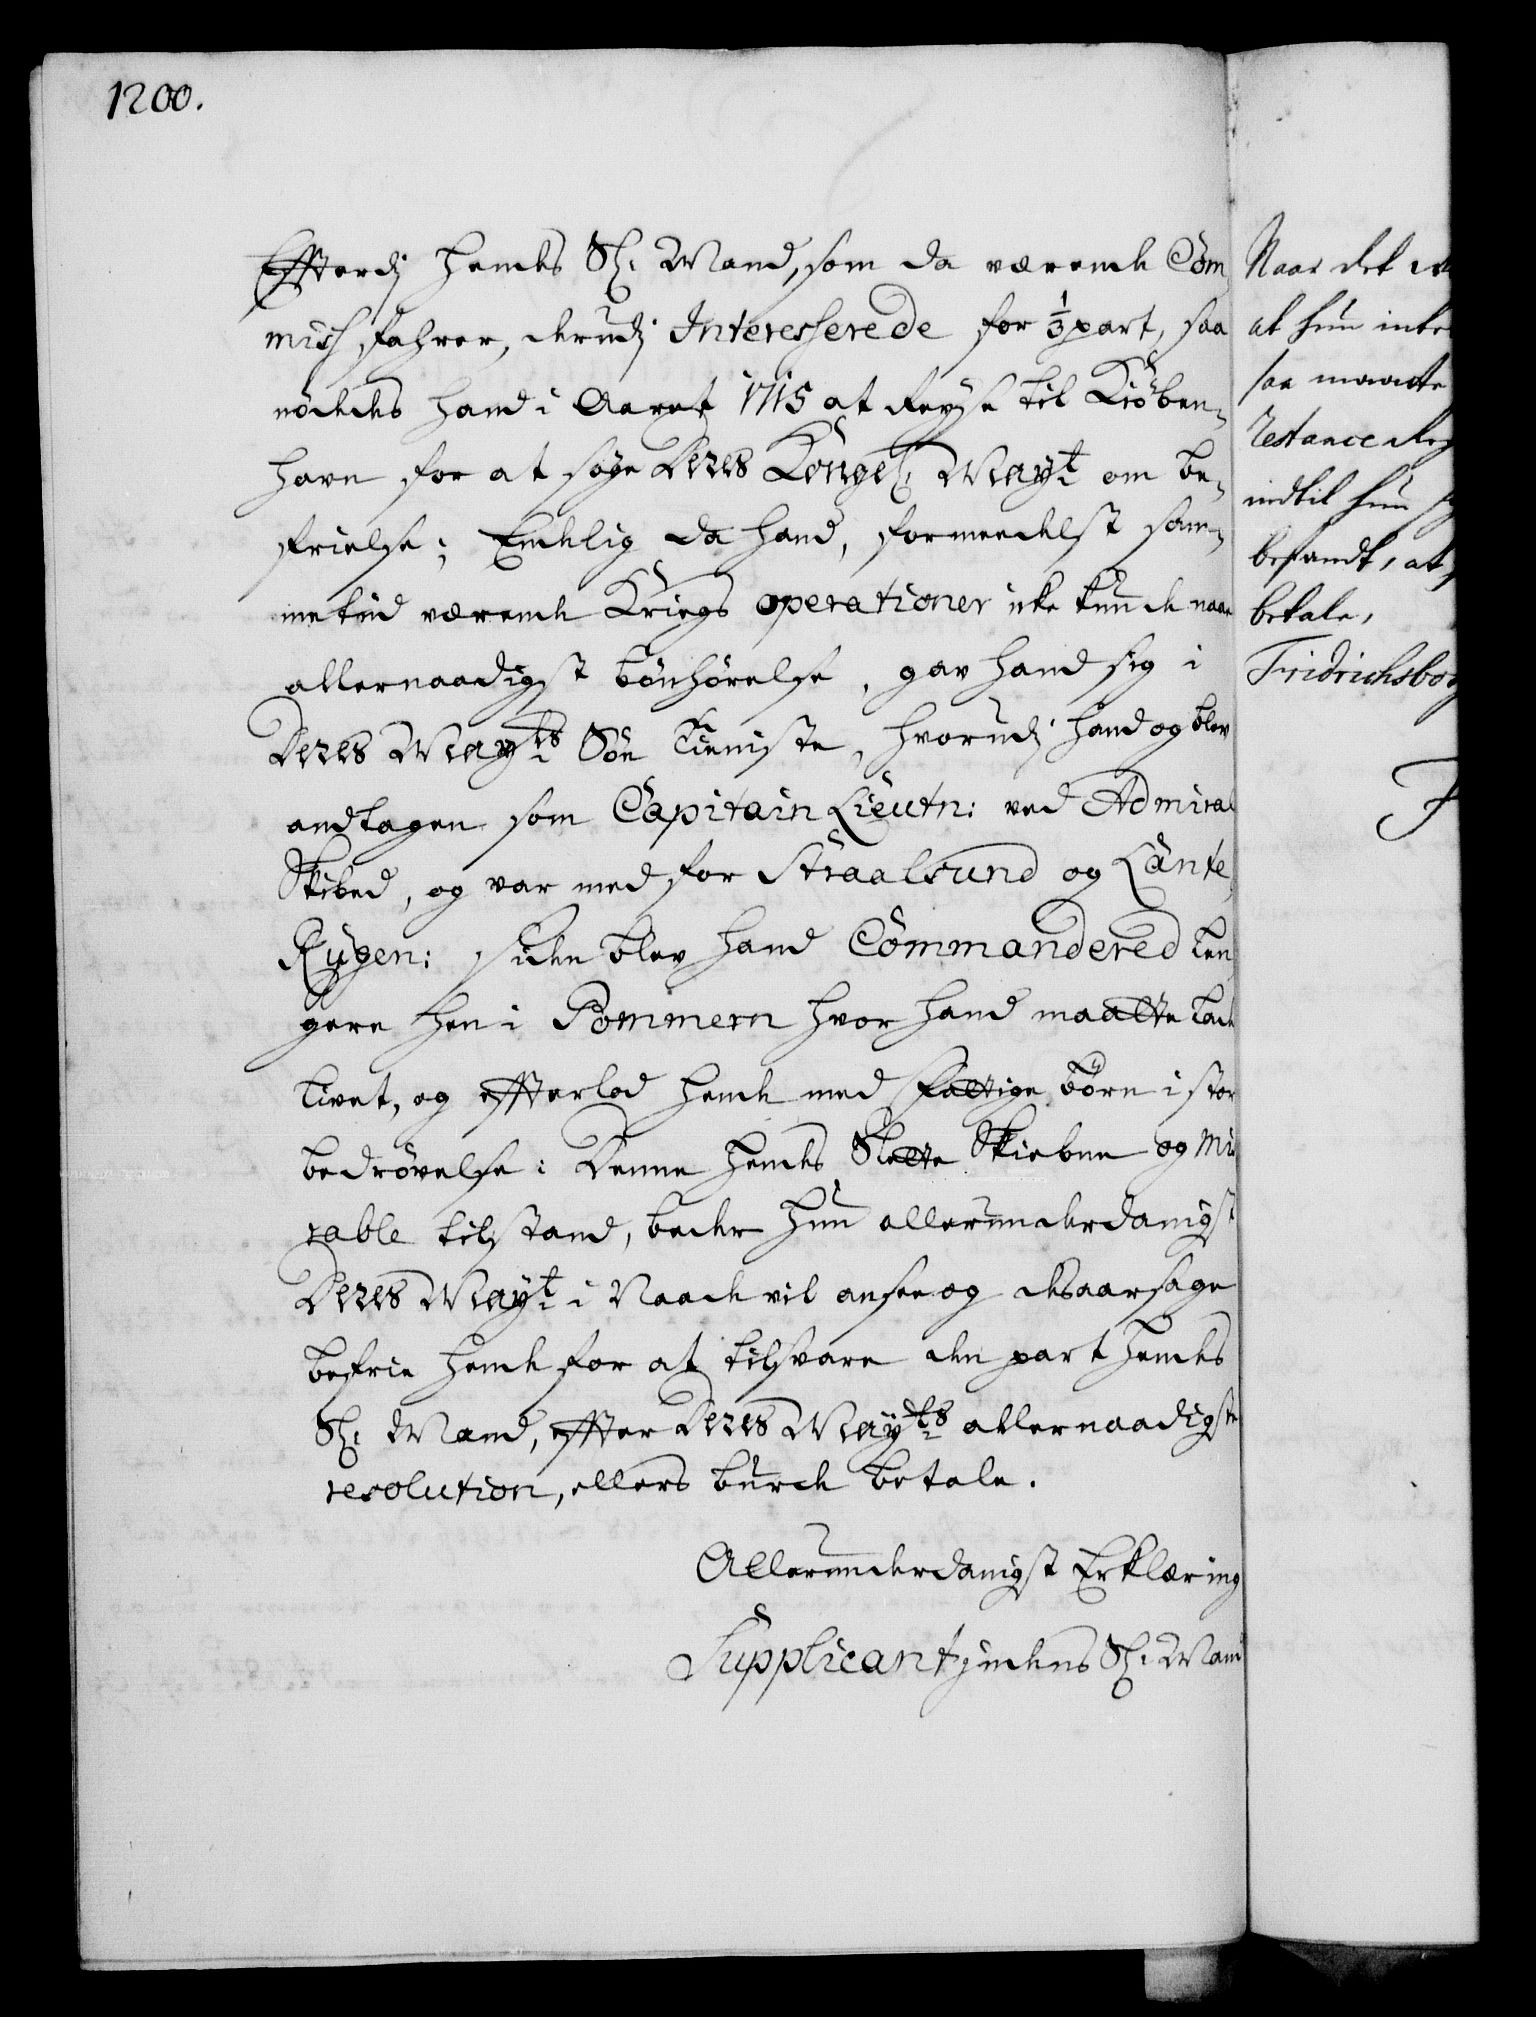 1200.
Effterdj hendes Sl: Mand, som da værende Com
miss fahrer, derudj Interesserede for 1/3 part, saa
nödedes hand i Aaret 1715 at Reyse til Kiöben,
havn for at søge Deres Kongel: Mayt om be,
frielse; Endelig da hand, formedelst sam,
me tid værende Kriegs operationer icke kunde naae
allernaadigst bönhörelse, gav hand sig i
Deres Mayts Söe tieniste, hvorudj hand og blev
andtagen som Capitain Lieutn: ved Admiral
Skibed, og var med for Straalsund og Lante
Rügen: siden blev hand Commandered len
gere hen i Pommern hvor hand maatte lade
livet, og effterlod hende med fattige börn i stor
bedrövelse: Denne hendes Slette Skiebne og Mi
rable tilstand, beder hun allerunderdanigst
Deres Mayt i Naade vil ansee og desaarsage
befrie hende for at tilsvare den part hendes
Sl: Mand, effter Deres Mayts allernaadigste
resolution, ellers burde betale.
Allerunderdanigst Erklæring
Supplicantjndens Sl: Mand
Naar det
at hun inte
saa maatte
restance
indtil hun
befandt, at
betale,
Fridrichsborg
F